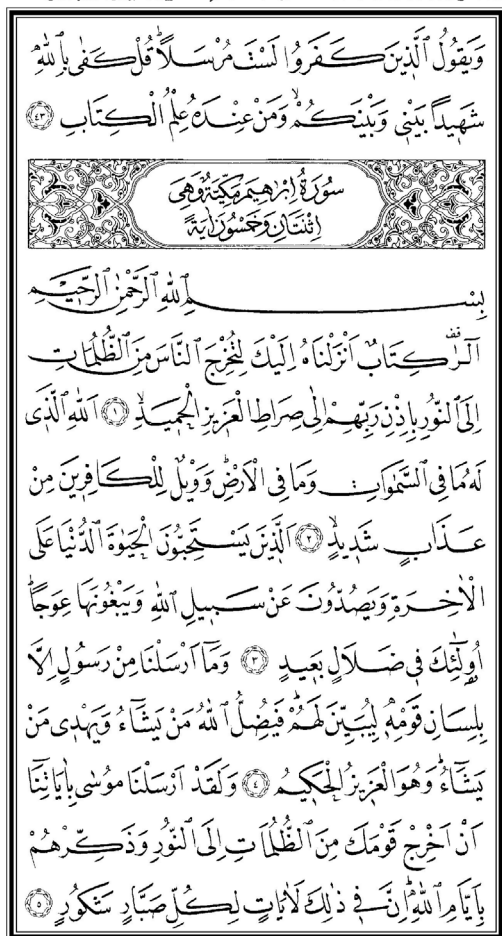 وَيَقُولُ الَّذِينَ كَفَرُوا لَسْتَ مُرْسَلًاۜ قُلْ كَفٰى بِاللّٰهِ
شَهٖيدًا بَيْنٖي وَبَيْنَكُمْۙ وَمَنْ عِنْدَهُ عِلْمُ الْكِتَابِ ﴿٤٣﴾
سُورَةُ اِبْرٰهٖيمَ مَكِّيَّةٌ وَهِيَ
اِثْنَتَانِ وَخَمْسُونَ اٰيَةً
بِسْمِ اللّٰهِ الرَّحْمٰنِ الرَّحٖيمِ
الٓرٰ۠ كِتَابٌ اَنْزَلْنَاهُ اِلَيْكَ لِتُخْرِجَ النَّاسَ مِنَ الظُّلُمَاتِ
اِلَى النُّورِ بِاِذْنِ رَبِّهِمْ اِلٰى صِرَاطِ الْعَزٖيزِ الْحَمٖيدِۙ ﴿١﴾ اَللّٰهِ الَّذٖي
لَهُ مَا فِي السَّمٰوَاتِ وَمَا فِي الْاَرْضِۜ وَوَيْلٌ لِلْكَافِرٖينَ مِنْ
عَذَابٍ شَدٖيدٍۙ ﴿٢﴾ اَلَّذٖينَ يَسْتَحِبُّونَ الْحَيٰوةَ الدُّنْيَا عَلَى
الْاٰخِرَةِ وَيَصُدُّونَ عَنْ سَبٖيلِ اللّٰهِ وَيَبْغُونَهَا عِوَجًاۜ
اُو۬لٰٓئِكَ فٖي ضَلَالٍ بَعٖيدٍ ﴿٣﴾ وَمَٓا اَرْسَلْنَا مِنْ رَسُولٍ اِلَّا
بِلِسَانِ قَوْمِهٖ لِيُبَيِّنَ لَهُمْۜ فَيُضِلُّ اللّٰهُ مَنْ يَشَٓاءُ وَيَهْدٖي مَنْ
يَشَٓاءُۜ وَهُوَ الْعَزٖيزُ الْحَكٖيمُ ﴿٤﴾ وَلَقَدْ اَرْسَلْنَا مُوسٰى بِاٰيَاتِنَٓا
اَنْ اَخْرِجْ قَوْمَكَ مِنَ الظُّلُمَاتِ اِلَى النُّورِ وَذَكِّرْهُمْ
بِاَيَّامِ اللّٰهِۜ اِنَّ فٖي ذٰلِكَ لَاٰيَاتٍ لِكُلِّ صَبَّارٍ شَكُورٍ ﴿٥﴾